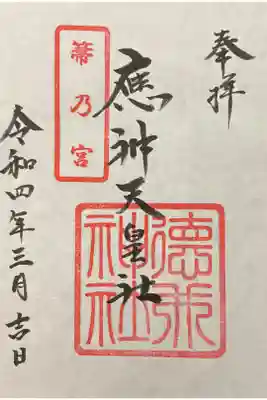 奉拝
應神天皇社
箒乃宮
神社
令和四年三月吉日